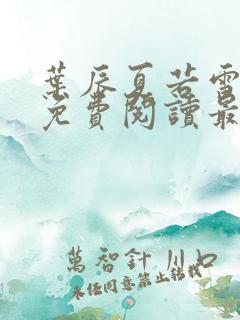 葉辰夏若雪
免費閱讀最
萬智針 川口
未任同意禁止轉載